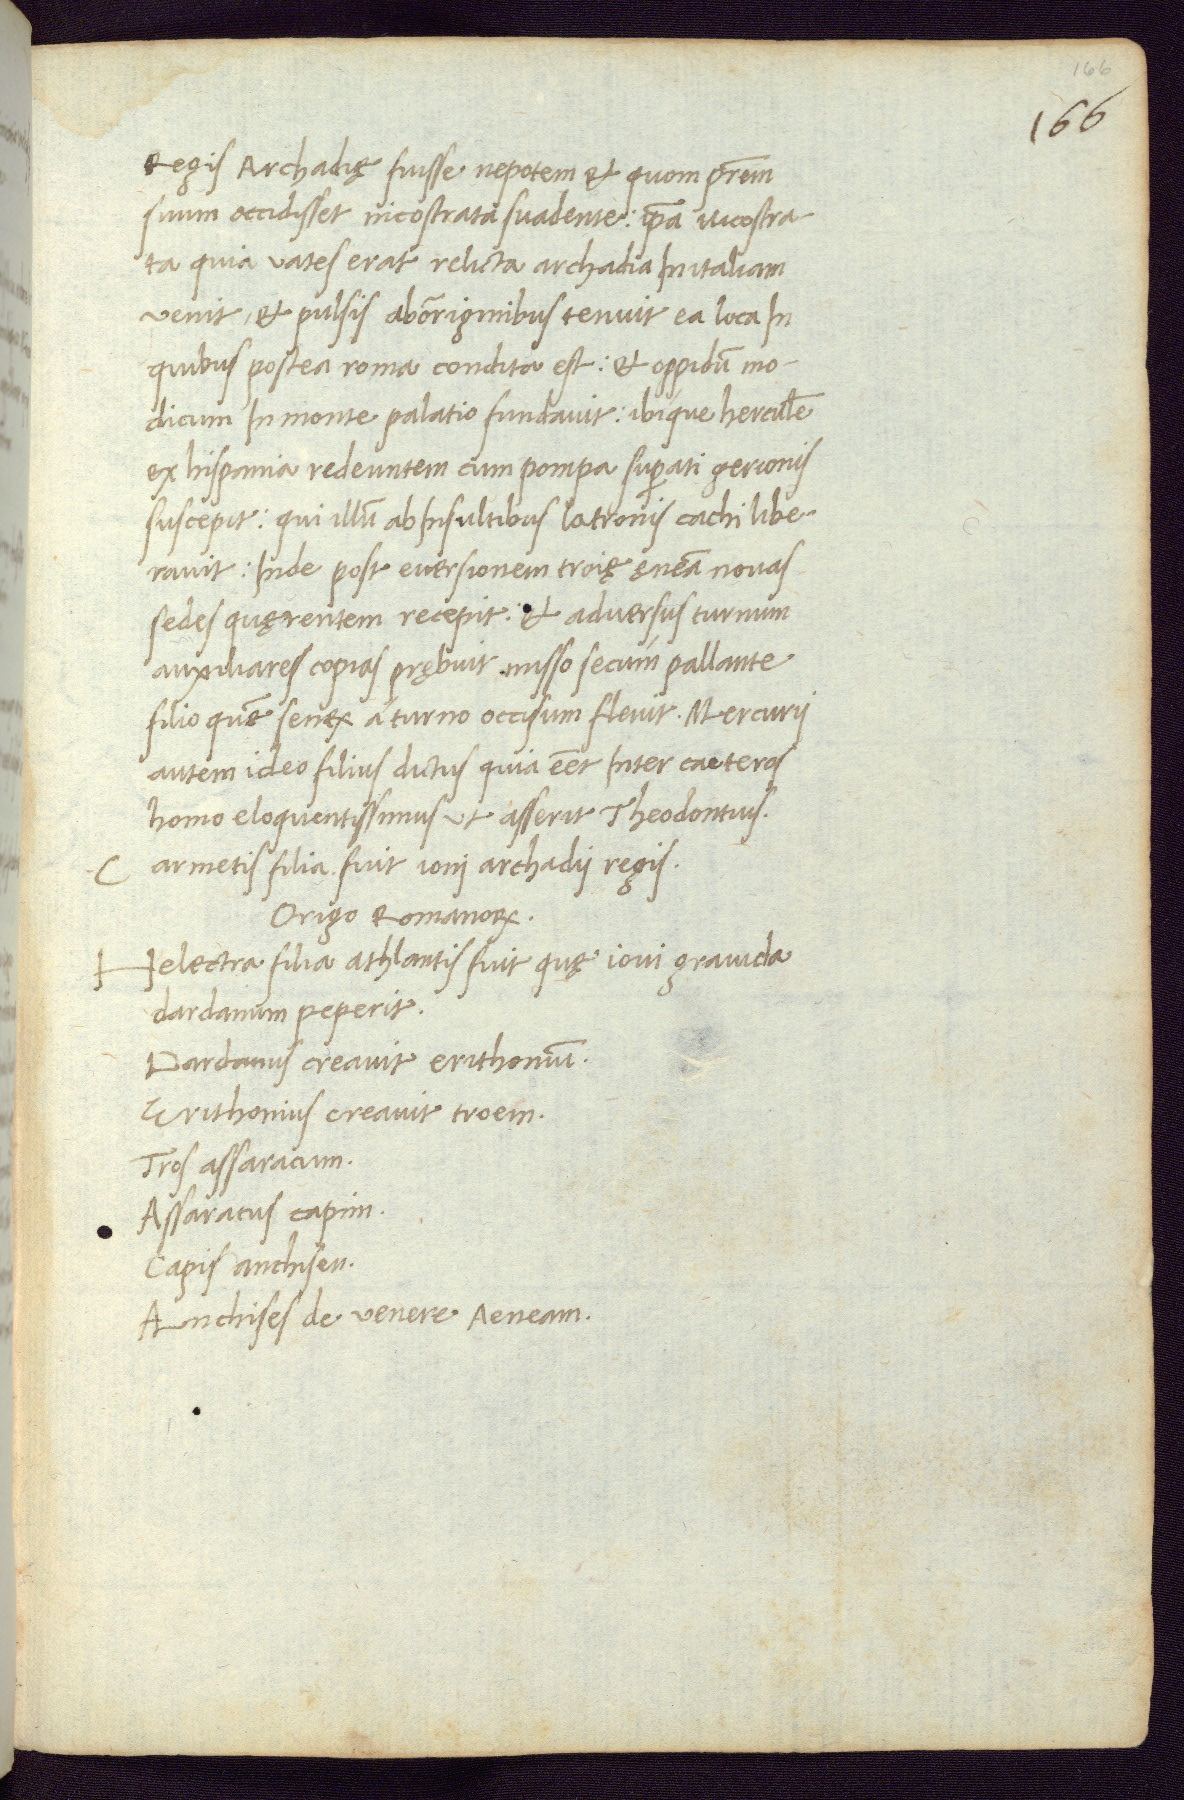 166
166
Regis Archadię fuisse nepotem & quom pr̄em
suum occidisset nicostrata suadente: ip̄a nicostra-
ta quia vates erat relicta archadia In italiam
venit, & pulsis aborῑginibus tenuit ea loca In
quibus postea roma condita est: & oppidū mo-
dicum In monte palatio fundavit: ibique herculē
ex hispania redeuntem cum pompa sup̱ati gerionis
suscepit: qui illū ab Insultibus latronis cachi libe-
ravit: Inde post eversionem troię ęneā novas
sedes quęrentem recepit: & adversus turnum
auxiliares copias prębuit misso secum pallante
filio quē senex a turno occisum flevit. Mercurii
autem ideo filius dictus quia eēt Inter caeteros
homo eloquentissimus ut asserit Theodontius.
C armetis filia fuit ioni archadii regis.
Origo Romanoꝝ.
H electra filia athlantis fuit quę ioui grauida
dardanum peperit.
Dardanus creavit erithoniū.
Erithonius creavit troem.
Tros assaracum.
Assaracus capim.
Capis anchisen.
Anchises de venere Aeneam.